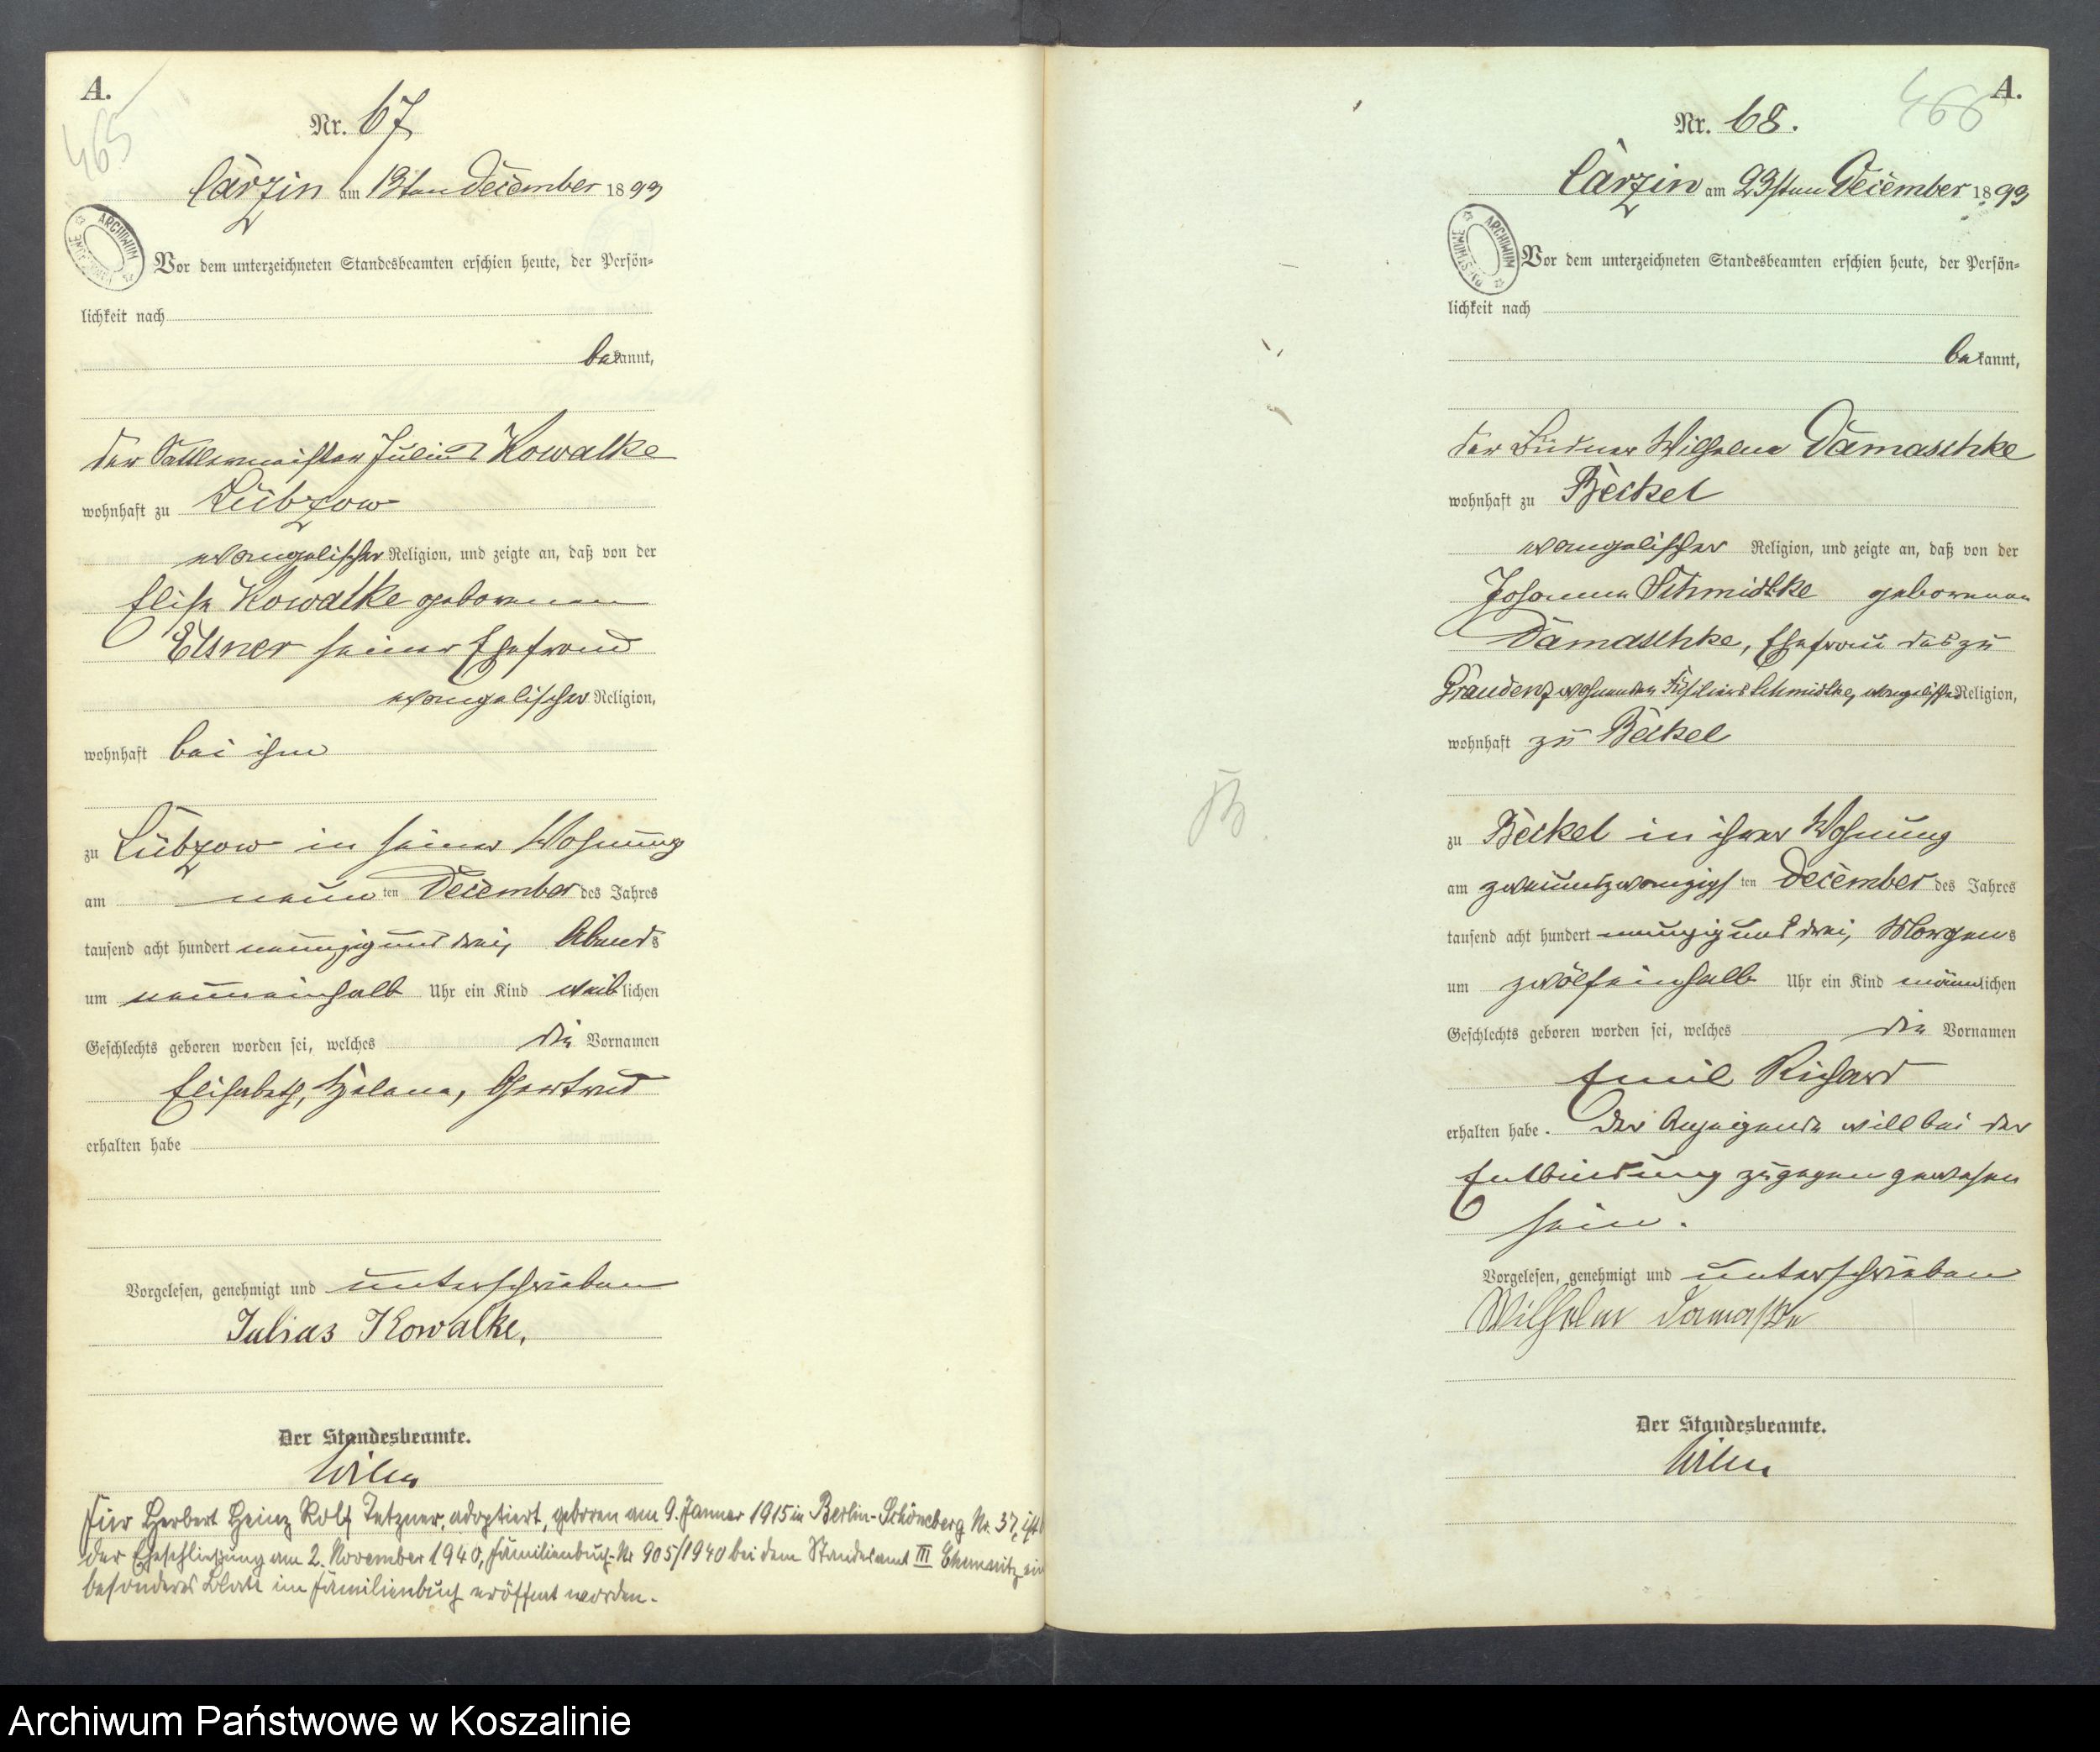 A.
465
Nr. 67
Carzin am 13ten December 1893
ARCHIWUM
Vor dem unterzeichneten Standesbeamten erschien heute, der Persön=
lichkeit nach
bekannt,
der Sattlermeister Julius Kowalke
wohnhaft zu Lübzow
evangelischer Religion, und zeigte an, daß von der
Elise Kowalke geborenen
Elsner seiner Ehefrau
evangelischer Religion,
wohnhaft bei ihm
zu Lübzow in seiner Wohnung
am neun ten December des Jahres
tausend acht hundert neunzig und drei, Abends
um neuneinhalb Uhr ein Kind weiblichen
Geschlechts geboren worden sei, welches die Vornamen
Elisabeth, Helene, Gertrud
erhalten habe
Vorgelesen, genehmigt und unterschrieben
Julius Kowalke.
Der Standesbeamte.
Für Herbert Heinz Rolf Tetzner, adoptiert, geboren am 9. Januar 1915 in Berlin-Schöneberg Nr. 37, ist
der Eheschließung am 2. November 1940, Familienbuch-Nr 905/1940 bei dem Standesamt III Chemnitz ein
besonderes Blatt im Familienbuch eröffnet worden.
A.
466
Nr. 68.
Carzin am 23sten December 1893
ARCHIWUM
Vor dem unterzeichneten Standesbeamten erschien heute, der Persön=
lichkeit nach
bekannt,
der Büdner Wilhelm Damaschke
wohnhaft zu Beckel
evangelischer Religion, und zeigte an, daß von der
Johanna Schmidtke geborenen
Damaschke, Ehefrau des zu
Graudenz wohnenden Füsiliers Schmidtke, evangelischer Religion,
wohnhaft zu Beckel
zu Beckel in ihrer Wohnung
am zweiundzwanzigsten December des Jahres
tausend acht hundert neunzig und drei, Morgens
um zwölfeinhalb Uhr ein Kind männlichen
Geschlechts geboren worden sei, welches die Vornamen
Emil Richard
erhalten habe. Der Anzeigende will bei der
Entbindung zugegen gewesen
sein.
Vorgelesen, genehmigt und unterschrieben
Wilhelm Damaschke
Der Standesbeamte.
Archiwum Państwowe w Koszalinie